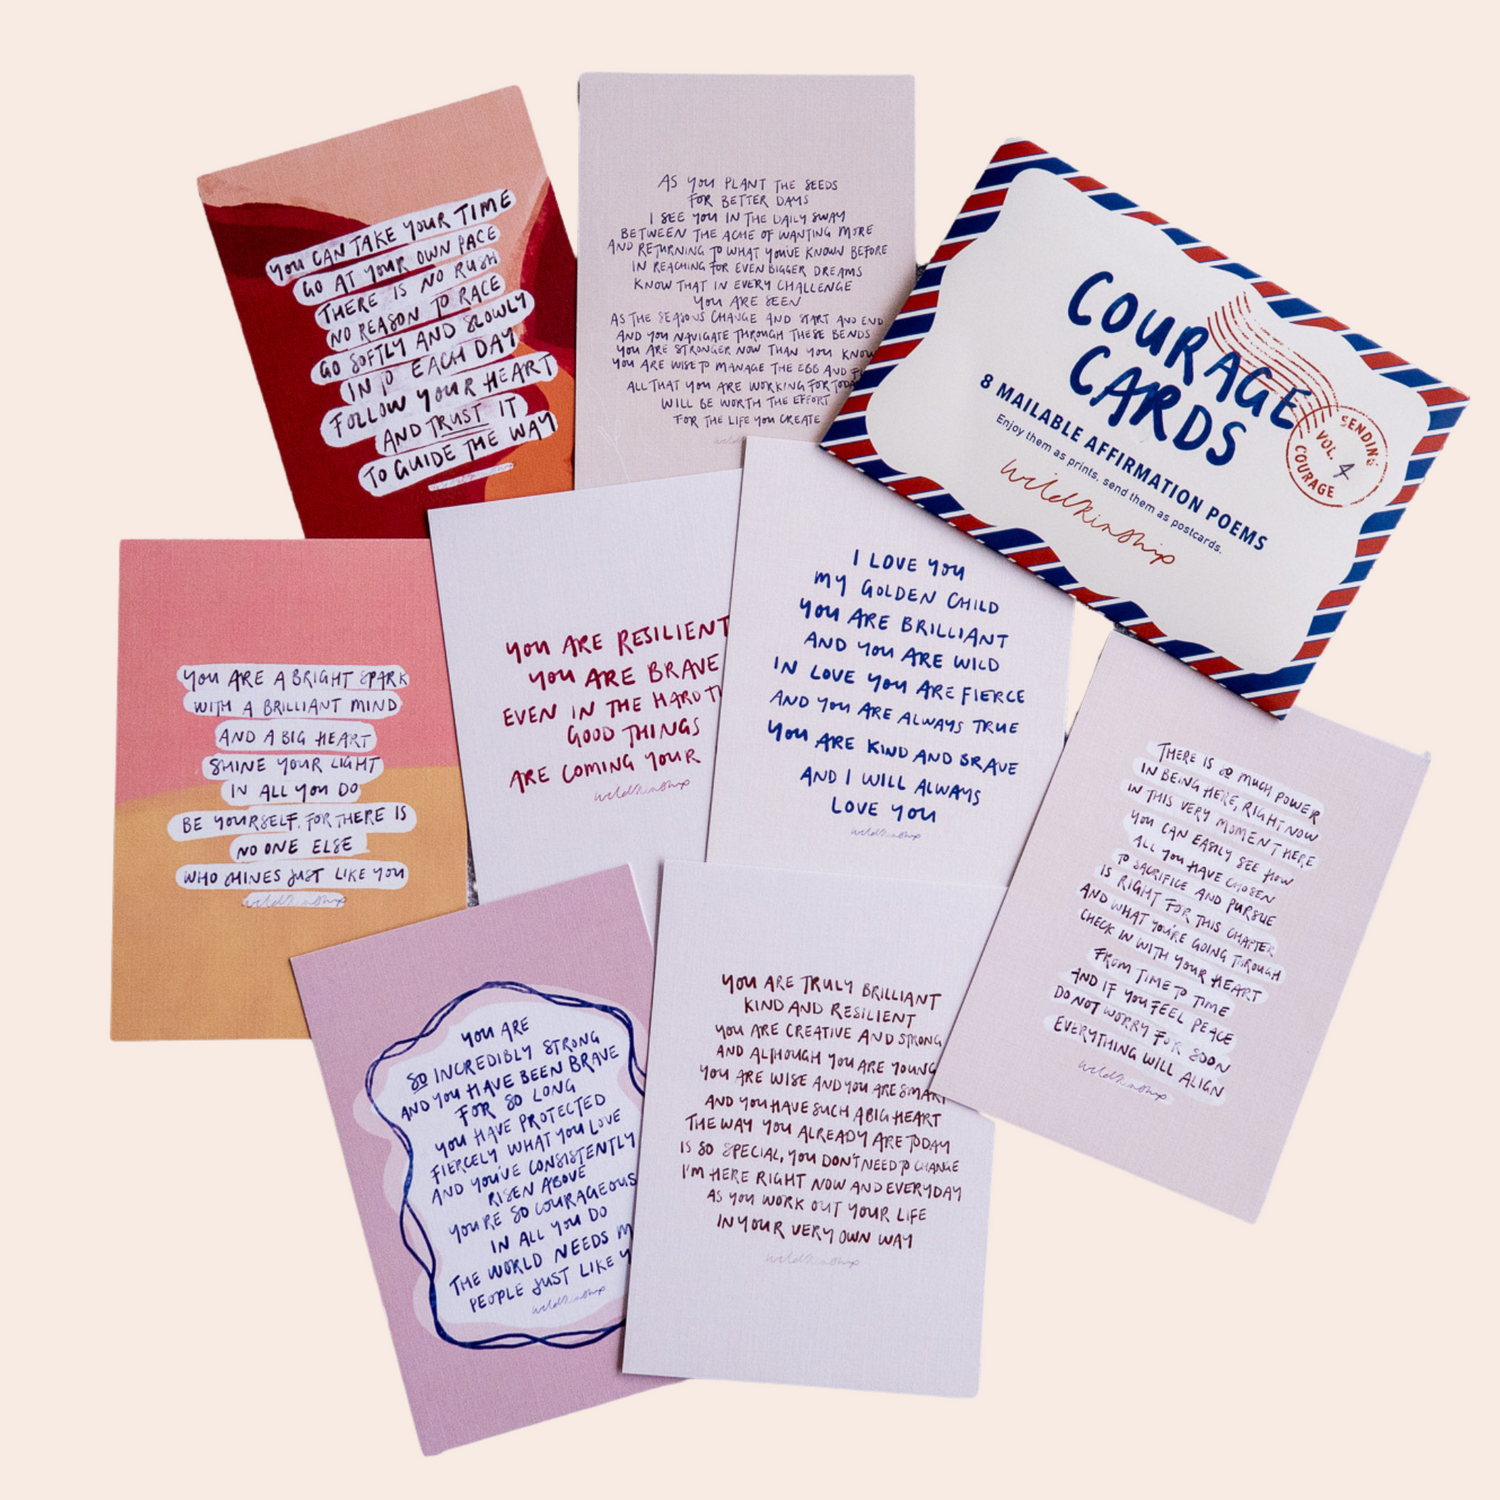 YOU CAN TAKE YOUR TIME
GO AT YOUR OWN PACE
THERE IS NO RUSH
NO REASON TO RACE
GO SOFTLY AND SLOWLY
INTO EACH DAY
FOLLOW YOUR HEART
AND TRUST IT
TO GUIDE THE WAY
AS YOU PLANT THE SEEDS
FOR BETTER DAYS
I SEE YOU IN THE DAILY SWAY
BETWEEN THE ACHE OF WANTING MORE
AND RETURNING TO WHAT YOU'VE KNOWN BEFORE
IN REACHING FOR EVEN BIGGER DREAMS
KNOW THAT IN EVERY CHALLENGE
YOU ARE SEEN
AS THE SEASONS CHANGE AND START AND END
AND YOU NAVIGATE THROUGH THESE BENDS
YOU ARE STRONGER NOW THAN YOU KNOW
YOU ARE WISE TO MANAGE THE EBB AND
ALL THAT YOU ARE WORKING FOR TODAY
WILL BE WORTH THE EFFORT
FOR THE LIFE YOU CREATE
COURAGE
CARDS
8 MAILABLE AFFIRMATION POEMS
Enjoy them as prints, send them as postcards.
wildkinship
SENDING
VOL. 4
COURAGE
YOU ARE A BRIGHT SPARK
WITH A BRILLIANT MIND
AND A BIG HEART
SHINE YOUR LIGHT
IN ALL YOU DO
BE YOURSELF, FOR THERE IS
NO ONE ELSE
WHO SHINES JUST LIKE YOU
wildkinship
YOU ARE RESILIENT
YOU ARE BRAVE
EVEN IN THE HARD
GOOD THINGS
ARE COMING YOUR
wildkinship
I LOVE YOU
MY GOLDEN CHILD
YOU ARE BRILLIANT
AND YOU ARE WILD
IN LOVE YOU ARE FIERCE
AND YOU ARE ALWAYS TRUE
YOU ARE KIND AND BRAVE
AND I WILL ALWAYS
LOVE YOU
wildkinship
THERE IS SO MUCH POWER
IN BEING HERE, RIGHT NOW
IN THIS VERY MOMENT HERE
YOU CAN EASILY SEE HOW
ALL YOU HAVE CHOSEN
TO SACRIFICE AND PURSUE
IS RIGHT FOR THIS CHAPTER
AND WHAT YOU'RE GOING THROUGH
CHECK IN WITH YOUR HEART
FROM TIME TO TIME
AND IF YOU FEEL PEACE
DO NOT WORRY FOR SOON
EVERYTHING WILL ALIGN
wildkinship
YOU ARE
SO INCREDIBLY STRONG
AND YOU HAVE BEEN BRAVE
FOR SO LONG
YOU HAVE PROTECTED
FIERCELY WHAT YOU LOVE
AND YOU'VE CONSISTENTLY
RISEN ABOVE
YOU'RE SO COURAGEOUS
IN ALL YOU DO
THE WORLD NEEDS
PEOPLE JUST LIKE
wildkinship
YOU ARE TRULY BRILLIANT
KIND AND RESILIENT
YOU ARE CREATIVE AND STRONG
AND ALTHOUGH YOU ARE YOUNG
YOU ARE WISE AND YOU ARE SMART
AND YOU HAVE SUCH A BIG HEART
THE WAY YOU ALREADY ARE TODAY
IS SO SPECIAL, YOU DON'T NEED TO CHANGE
I'M HERE RIGHT NOW AND EVERYDAY
AS YOU WORK OUT YOUR LIFE
IN YOUR VERY OWN WAY
wildkinship